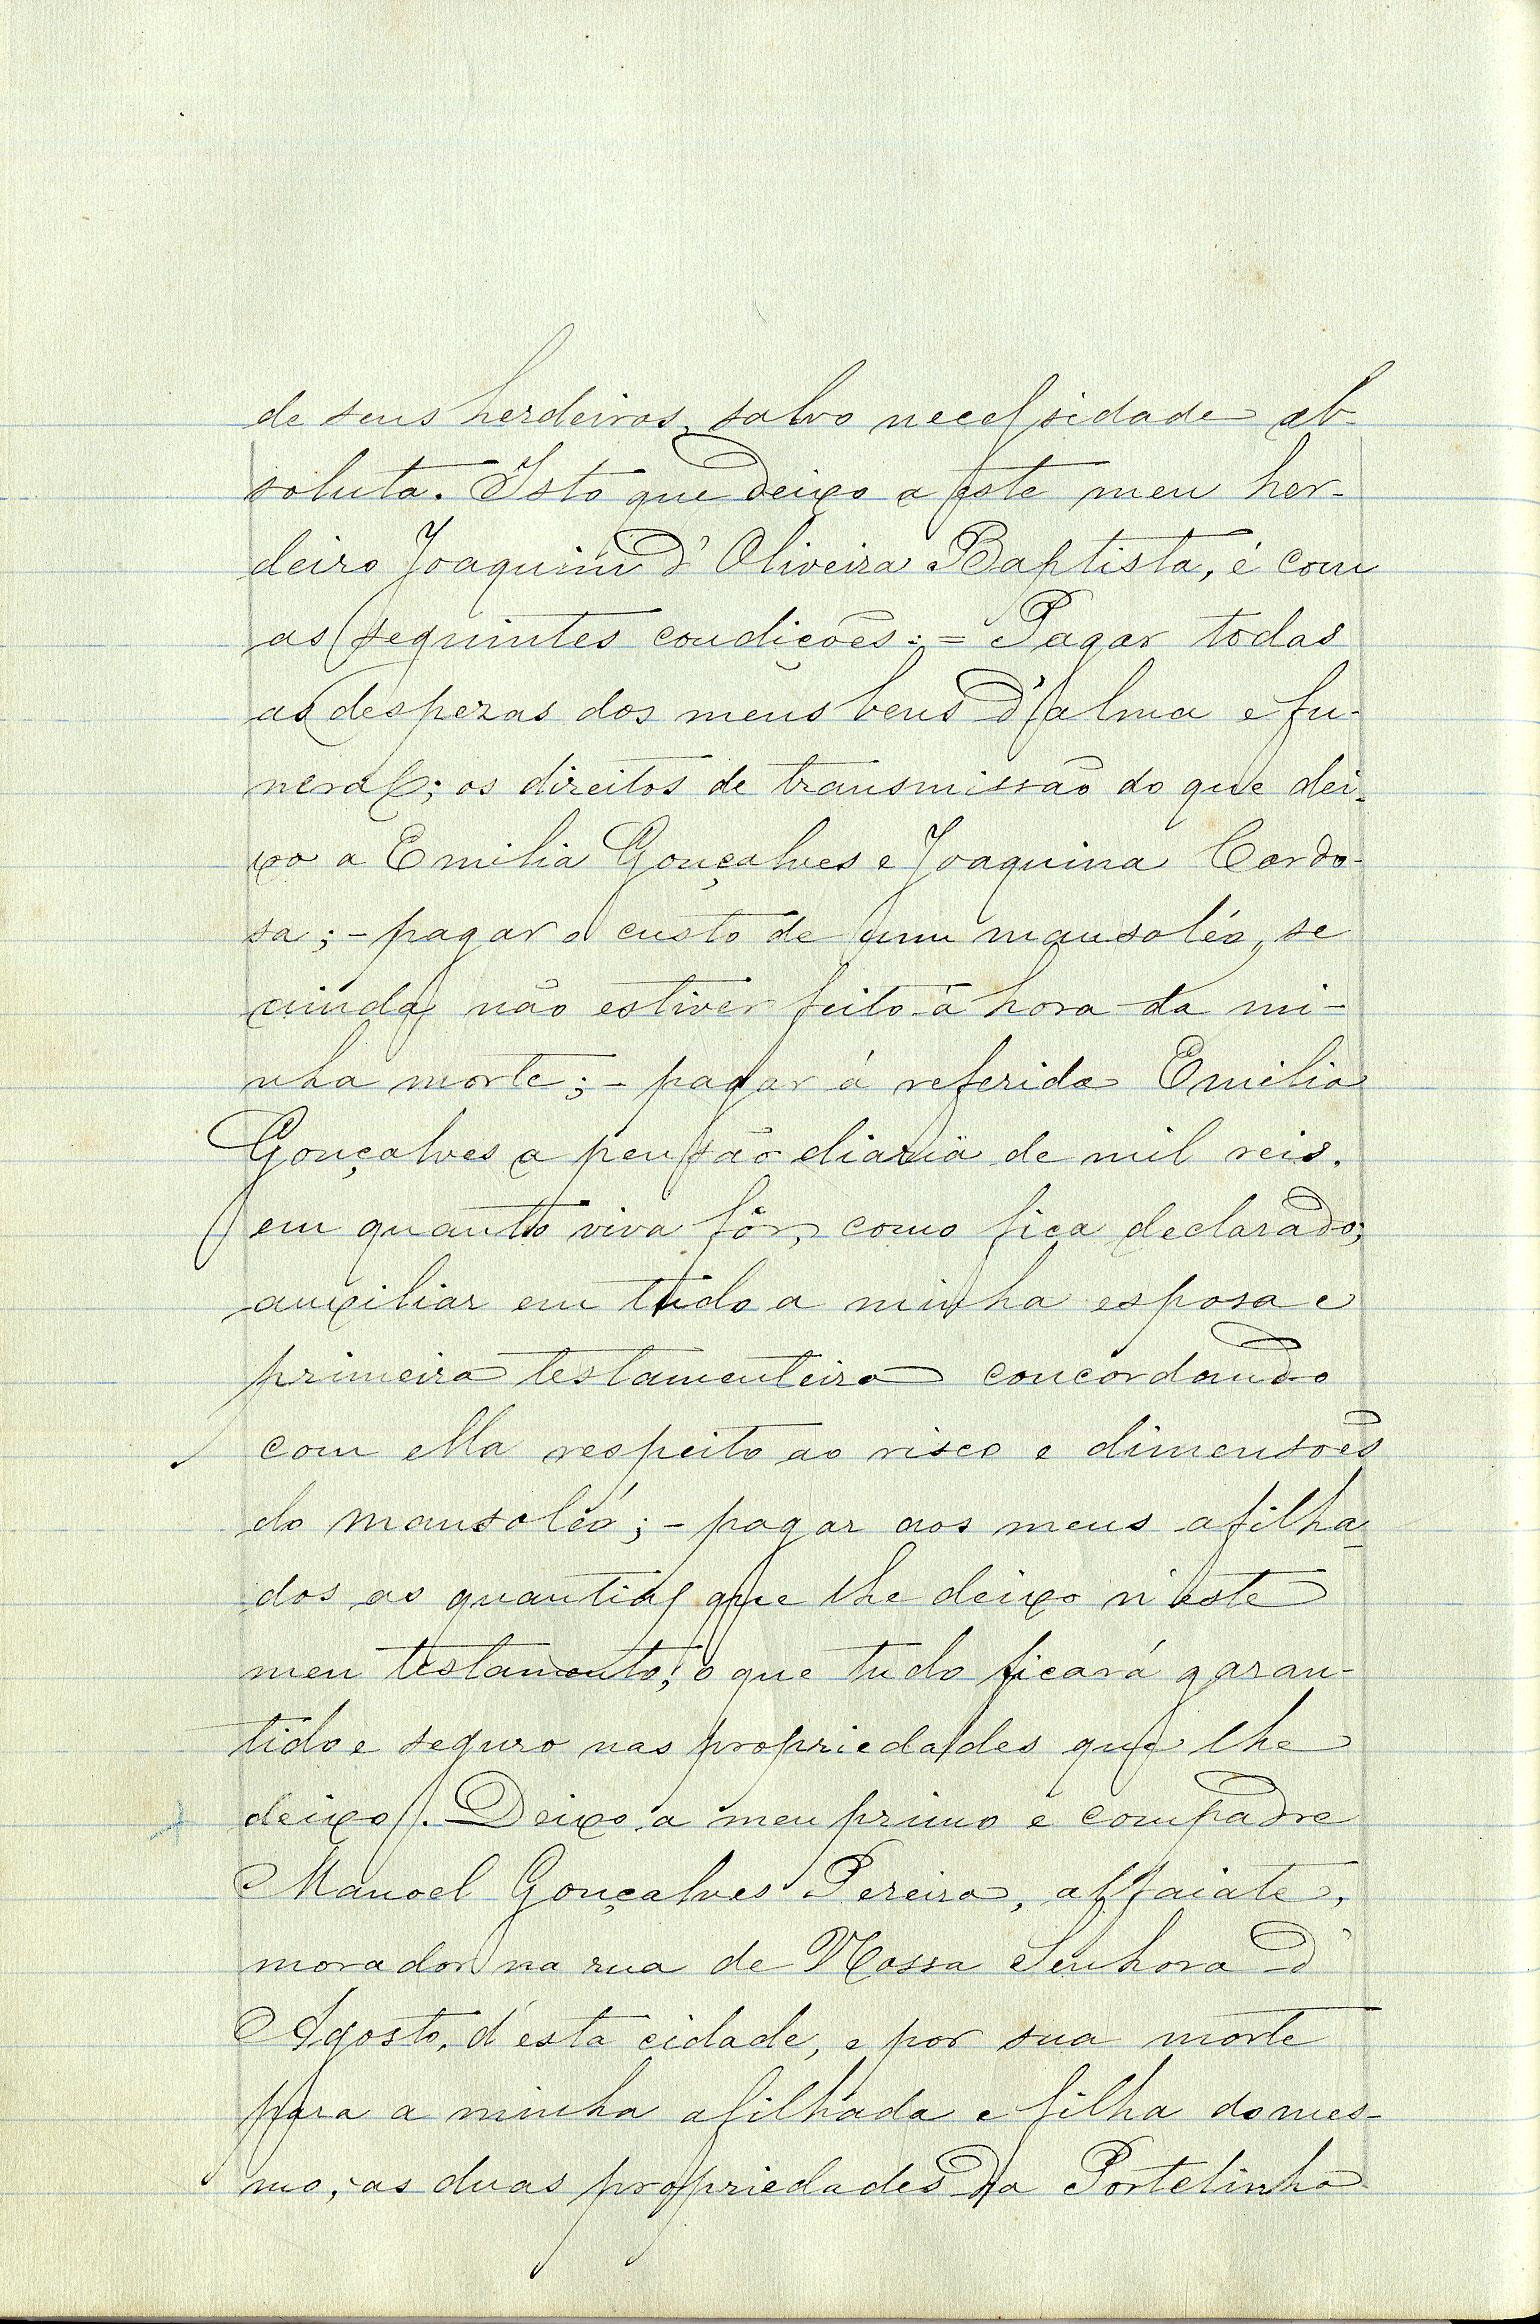 de seus herdeiros, salvo necessidade ab-
soluta. Isto que deixo a este meu her-
deiro Joaquim d'Oliveira Baptista, é com
as seguintes condições: = Pagar todas
as despezas dos meus bens d'alma e fu-
neral; os direitos de transmissão do que dei-
xo a Emilia Gonçalves e Joaquina Cardo-
sa; - pagar o custo de um mausoléo, se
ainda não estiver feito á hora da mi-
nha morte; - pagar á referida Emilia
Gonçalves a pensão diaria de mil reis,
em quanto viva fôr, como fica declarado;
auxiliar em tudo a minha esposa e
primeira testamenteira concordando
com ella respeito ao risco e dimensões
do mausoléo; - pagar aos meus afilha-
dos as quantias que lhe deixo n'este
meu testamento; o que tudo ficará garan-
tido e seguro nas propriedades que lhe
deixo. Deixo a meu primo e compadre
Manoel Gonçalves Pereira, alfaiate,
morador na rua de Nossa Senhora d'
Agosto, d'esta cidade, e por sua morte
para a minha afilhada e filha do mes-
mo, as duas propriedades da Portelinha